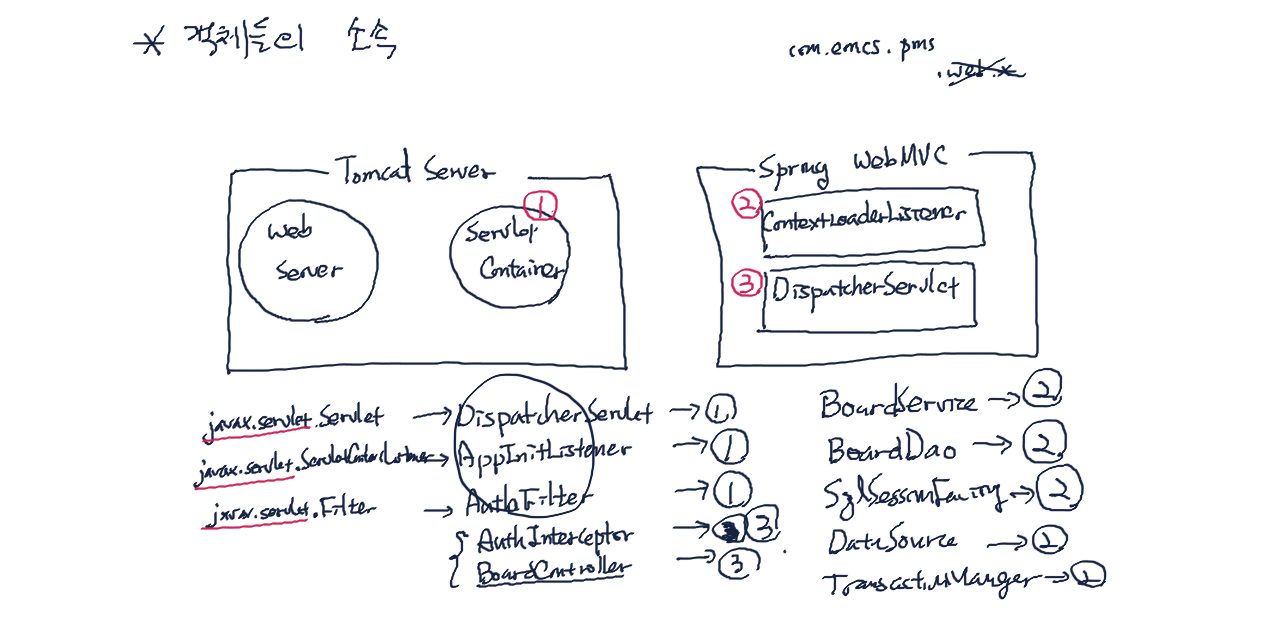 * 객체들의 소속
com.emcs.pms
.web.x
Tomcat Server
Web
Server
①
Servlet
Container
Spring WebMVC
②
ContextLoaderListener
③
DispatcherServlet
javax.servlet.Servlet → DispatcherServlet → ①
javax.servlet.ServletContextListener → AppInitListener → ①
javax.servlet.Filter → AuthFilter → ①
{ AuthInterceptor → ③
BoardController → ③
BoardService → ②
BoardDao → ②
SqlSessionFactory → ②
DataSource → ②
TransactionManger → ②